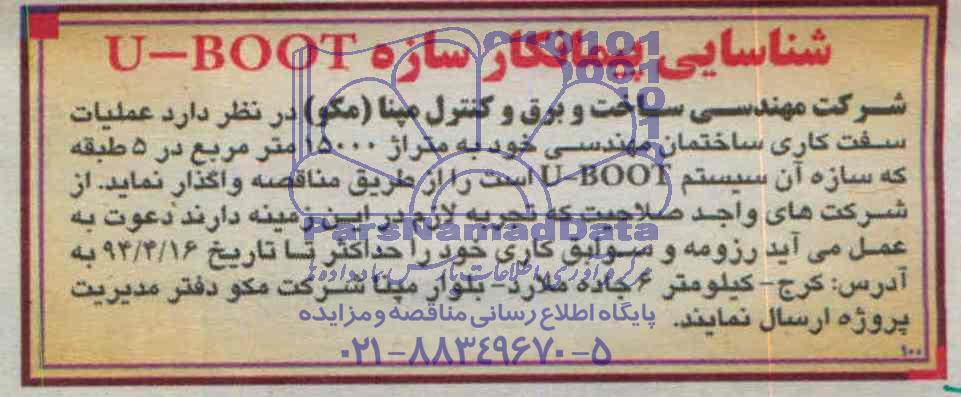 شناسایی پیمانکار سازه U-BOOT
شرکت مهندسی ساخت و برق و کنترل مپنا (مکو) در نظر دارد عملیات
سفت کاری ساختمان مهندسی خود به متراژ ۱۵۰۰۰ متر مربع در ۵ طبقه
که سازه آن سیستم U-BOOT است را از طریق مناقصه واگذار نماید. از
شرکت های واجد صلاحیت که تجربه لازم در این زمینه دارند دعوت به
عمل می آید رزومه و سوابق کاری خود را حداکثر تا تاریخ ۹۴/۴/۱۶ به
آدرس: کرج- کیلومتر ۶ جاده ملارد- بلوار مپنا شرکت مکو دفتر مدیریت
پروژه ارسال نمایند.
۹۰۰
ParsNamadData
پایگاه اطلاع رسانی مناقصه و مزایده
۰۲۱-۸۸۳۴۹۶۷۰-۵